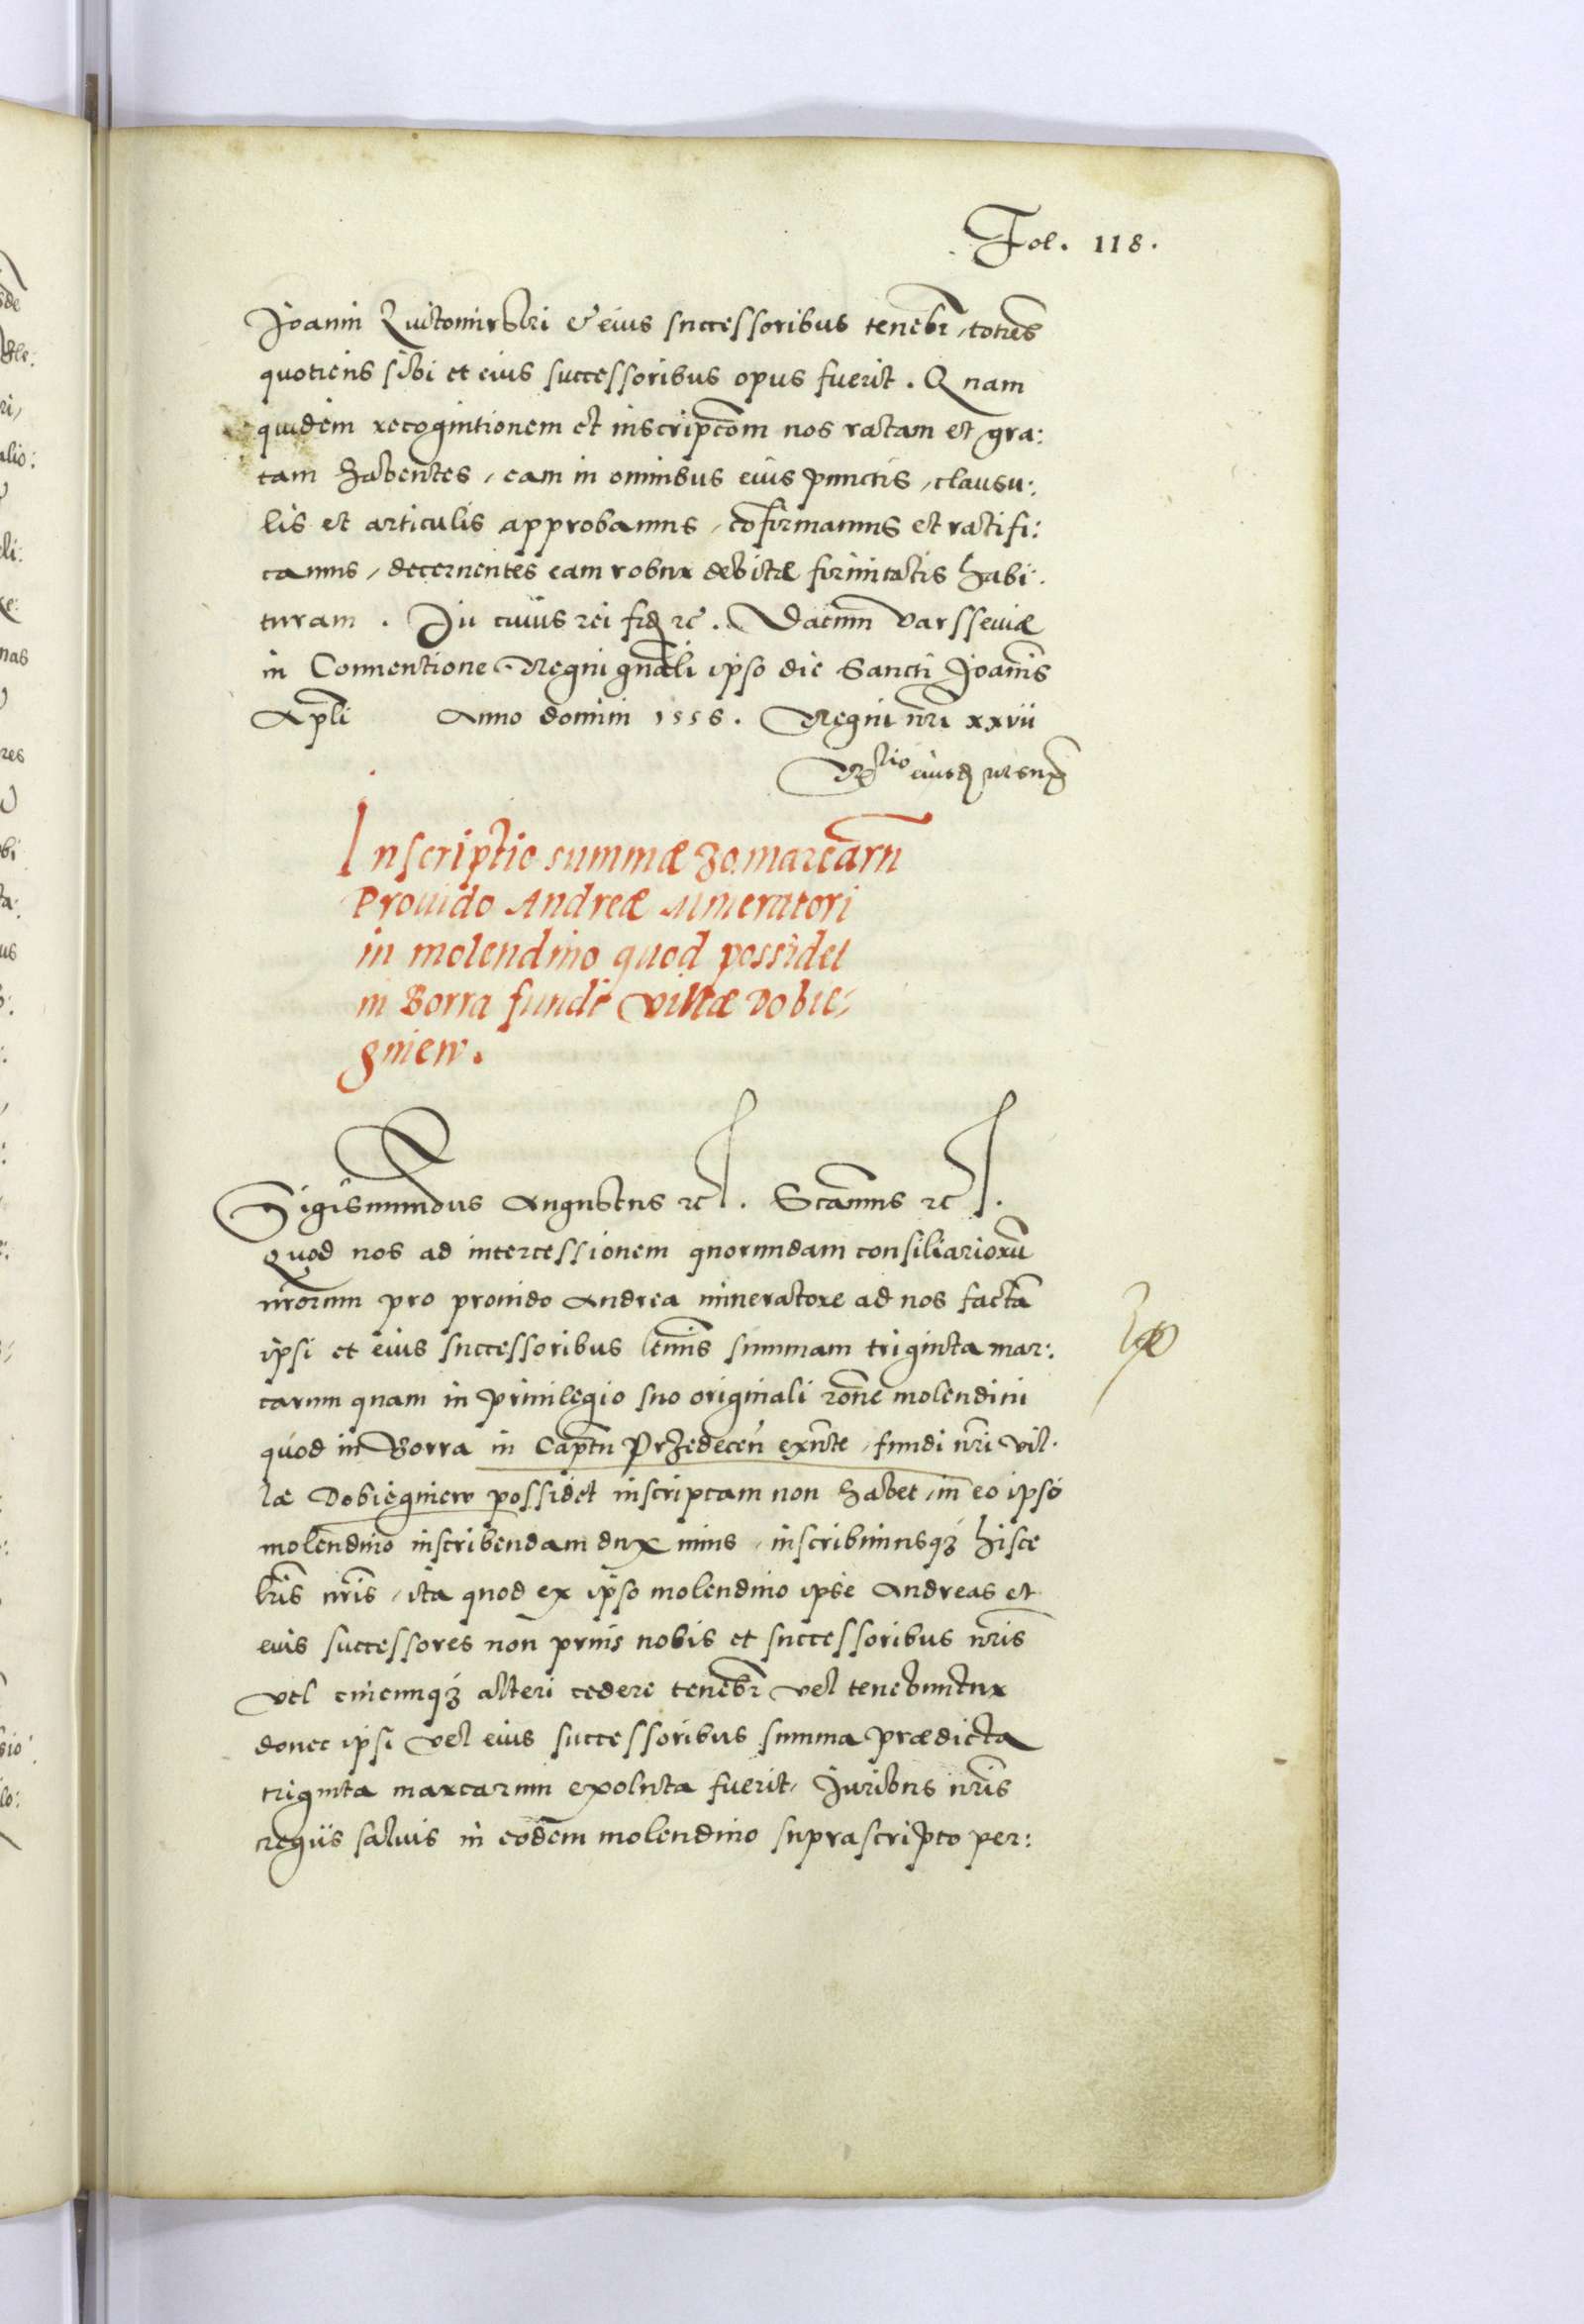 Fol. 118.
Joanni Kwtomirski & eius successoribus tenebr̄, toties
quotiens sibi et eius successoribus opus fuerit. Quam
quidem recognitionem et inscripcōm nos ratam et gra:
tam habentes, eam in omnibus eius punctis, clausu:
lis et articulis approbamus, cōfirmamus et ratifi:
camus, decernentes eam robur debitæ firmitatis habi:
turam. In cuius rei fid. rc. Datum Varsseviæ
in Conventione Regni gnāli ipso die Sancti Joānis
Apli Anno domini 1556. Regni nrī xxvii
Rtio eiusd. ut supr.
Inscriptio summæ 30. marcarū
Provido Andreæ mineratori
in molendino quod possidet
in Borra fundi villæ Dobie:
gniew.
Sigismundus Augustus rc. Scamus rc.
Quod nos ad intercessionem quorundam consiliariorū
nrōrum pro provido Andrea mineratore ad nos factā
ipsi et eius successoribus ltīmis summam triginta mar:
carum quam in privilegio suo originali rōne molendini
quod in Borra in Captū Przedecen̄ exn̄te, fundi nrī vil:
læ Dobiegniew possidet inscriptam non habet, in eo ipso
molendino inscribendam duximus, inscribimusq3 hisce
lrīs nrīs, ita quod ex ipso molendino ipse Andreas et
eius successores non prius nobis et successoribus nrīs
vel cuicumq3 alteri cedere tenebr̄ vel tenebuntur
donec ipsi vel eius successoribus summa prædicta
triginta marcarum exoluta fuerit, Juribus nrīs
regiis salvis in eodem molendino suprascripto per: